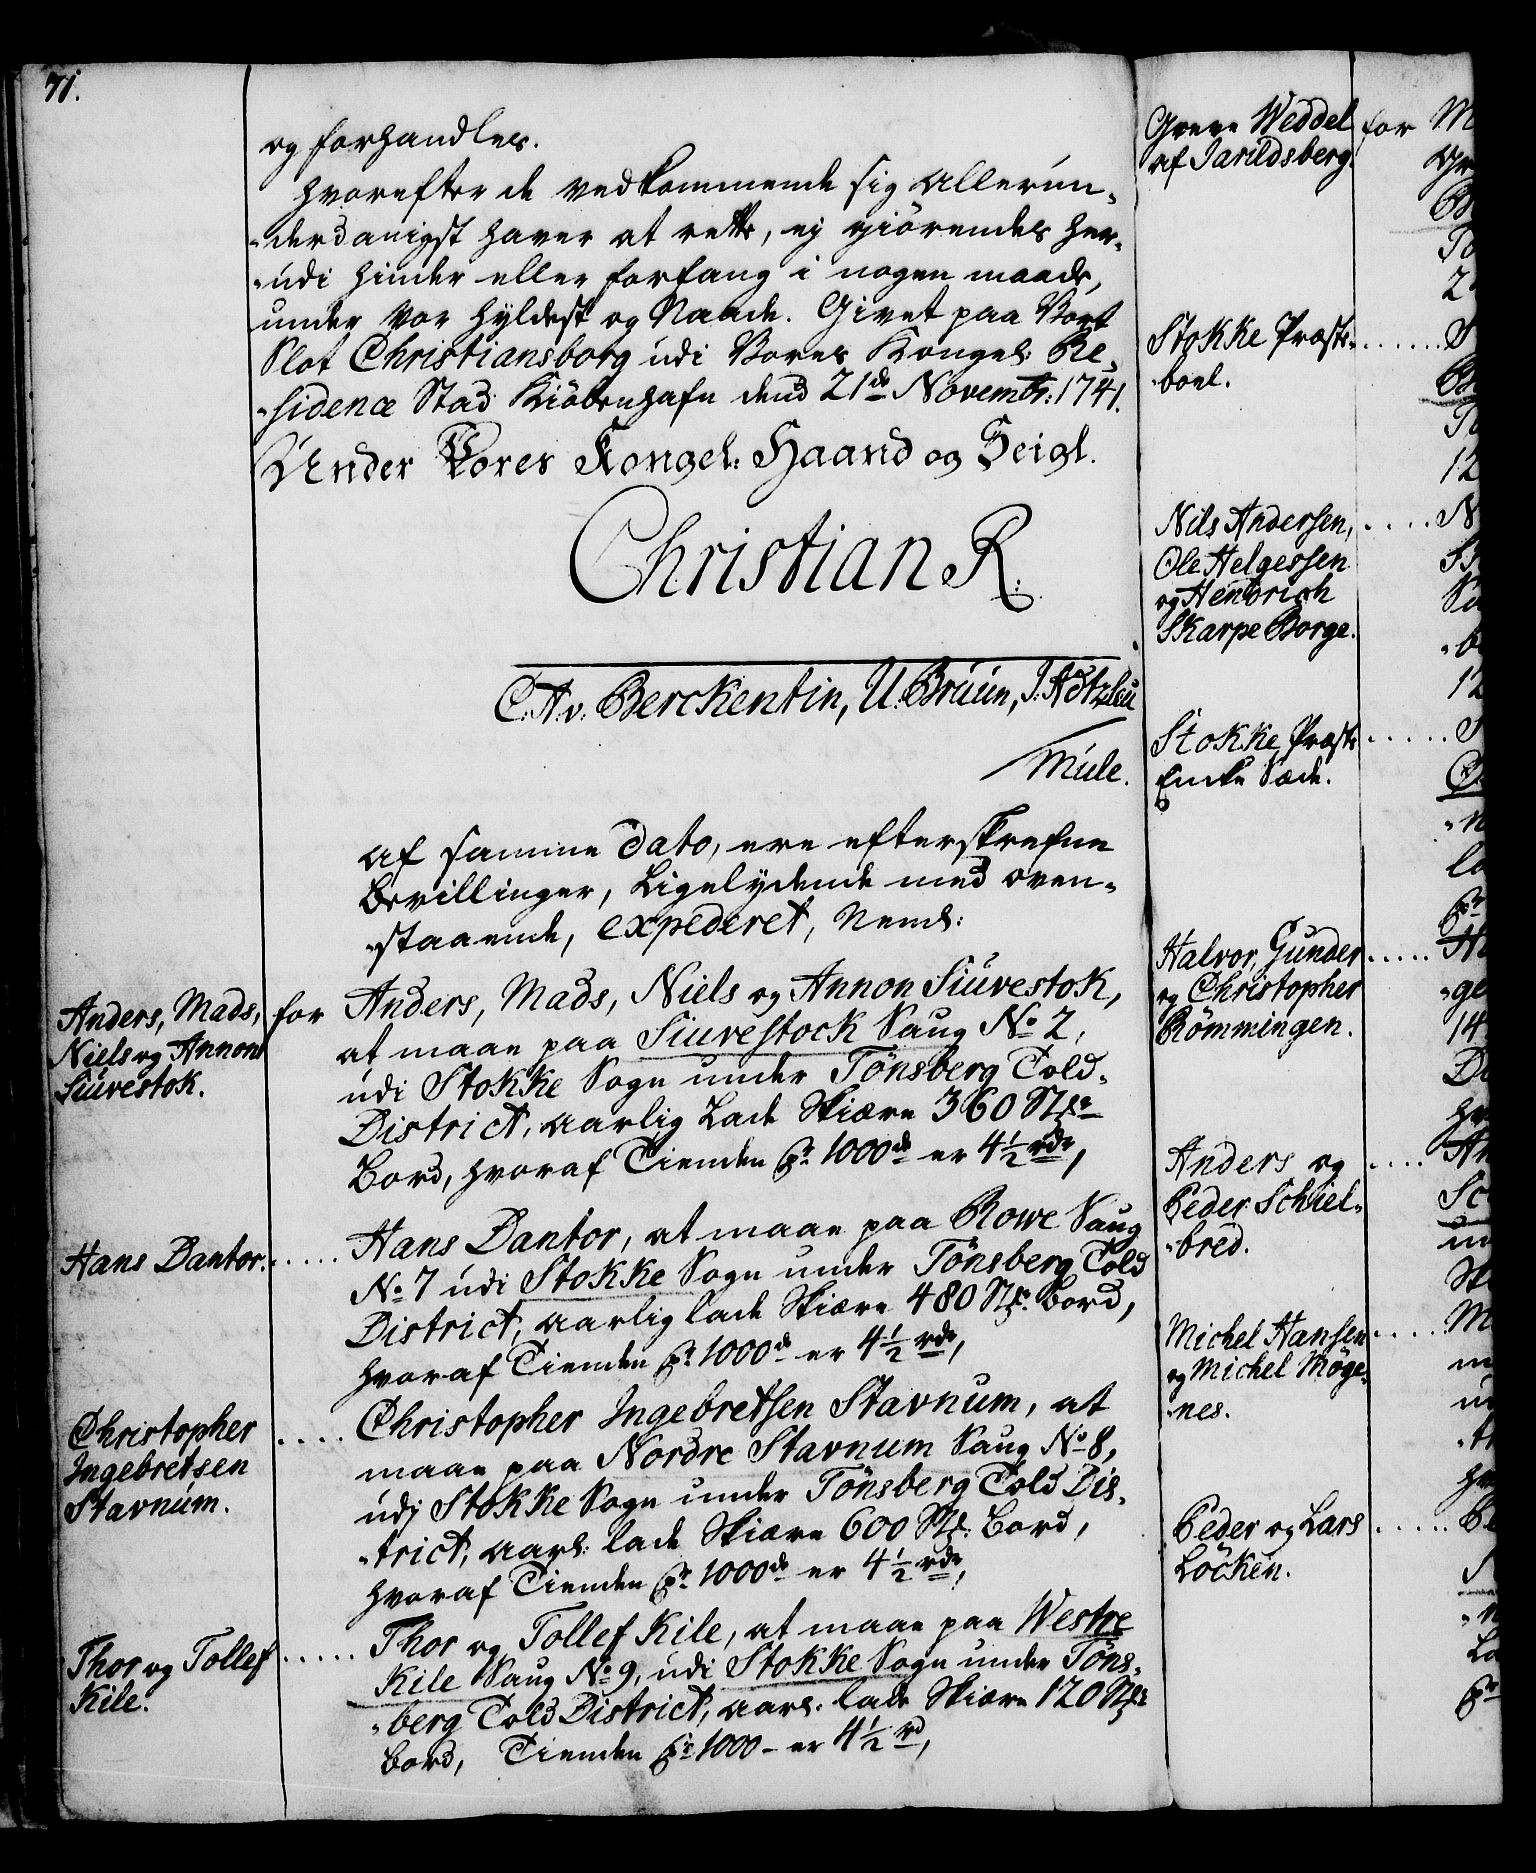 71.
og forhandles.
hvorefter de vedkommende sig allerun-
-derdanigst haver at rette, ej giörendes her-
-udi hinder eller forfang i nogen maade,
under Vor Hyldest og Naade. Givet paa Vort
Slot Christiansborg udi Vores Kongel: Re-
-sidence Stad Kiöbenhafn dend 21de Novembr: 1741.
Under Vores Kongel: Haand og Seigl.
Christian R.
C. A. v. Berckentin, U. Bruun,
Mule.
af samme Dato, ere efterskrefne
Bevillinger, Ligelydende med oven-
-staaende, expederet, Neml:
Anders, Mads,
Niels og Annon
Siuvestok.
for Anders, Mads, Niels og Annon Siuvestok,
at maae paa Siuvestock Saug No 2,
udi Stokke Sogn under Tönsberg Told-
District, aarlig Lade Skiære 360 Stk:
Bord, hvoraf Tienden pr 1000de er 4 1/2 rdr,
Hans Dantor. . . . . .
Hans Dantor, at maae paa Rowe Saug
No 7 udi Stokke Sogn under Tönsberg Told
District, aarlig lade Skiære 480 Stk: Bord,
hvoraf Tienden pr 1000de er 4 1/2 rdr,
Christopher . . . .
Ingebretsen
Stavnum.
Christopher Ingebretsen Stavnum, at
maae paa Nordre Stavnum Saug No 8,
udj Stokke Sogn under Tönsberg Told Dis-
-trict, aarl: lade Skiære 600 Stk: Bord,
hvoraf Tienden pr 1000de er 4 1/2 rdr,
Thor og Tollef . . . . .
Kile.
Thor og Tollef Kile, at maae paa Westre
Kile Saug No 9, udi Stokke Sogn under Töns-
-berg Told District, aarl: lade Skiære 120 Stk:
Bord, Tienden pr 1000 - er 4 1/2 rd,
Greve Weddel for
af Jarildsberg.
Stokke Præste- . . . . . .
-boel.
Nils Andersen, . . . .
Ole Helgessen
og Hendrich
Skarpe Borge.
Stokke Præste . . . . .
Encke Sæde.
Halvor, Gunder . . . . .
og Christopher
Römmingen.
Anders og . . . .
Peder Schiel-
-bred.
Michel Hansen . . . .
og Michel Möge-
-nes.
Peder og Lars . . . . .
Löcken.